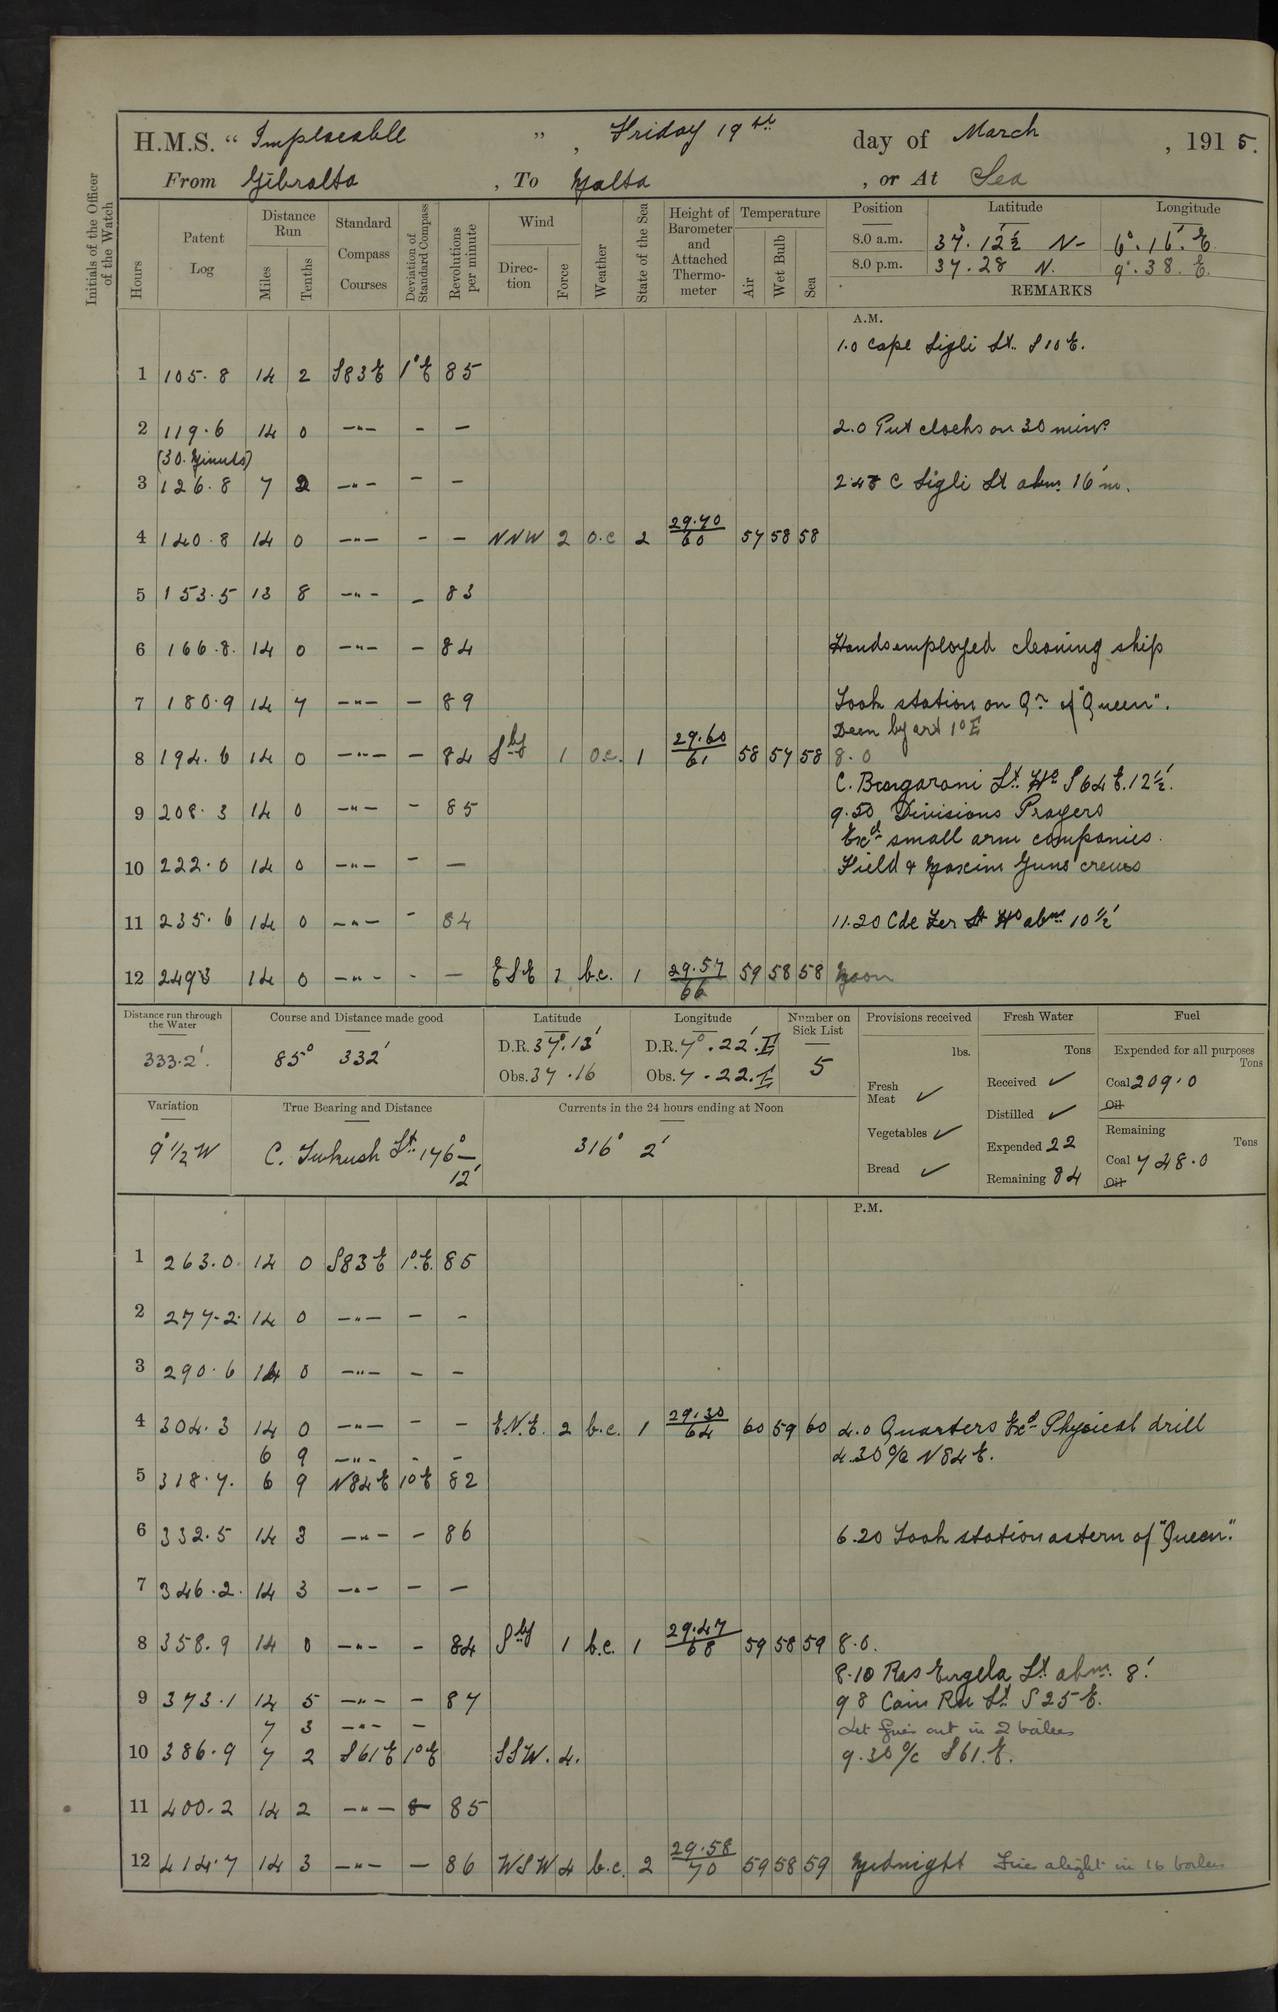 H.M.S. " Implacable ", Friday 19th day of March, 1915.
From Gibralta, To Malta, or At Sea
Initials of the Officer of the Watch
Hours
Patent Log
Distance Run
Miles
Tenths
Standard Compass Courses
Deviation of Standard Compass
Revolutions per minute
Wind
Direction
Force
Weather
State of the Sea
Height of Barometer and Attached Thermometer
Temperature
Air
Wet Bulb
Sea
Position Latitude Longitude
8.0 a.m. 37°. 12½' N- 6°. 16'. E.
8.0 p.m. 37. 28 N. 9°. 38. E.
REMARKS
A.M.
1.0 Cape Sigli Lt. S 10 E.
1 105.8 14 2 S83E 1°E 85
2 119.6 14 0 —"— - — 2.0 Put clocks on 30 mins.
(30. Minuts)
3 126.8 7 2 —"— - — 2.48 C Sigli Lt abm 16'm.
4 140.8 14 0 —"— - — NNW 2 o.c 2 29.70/60 57 58 58
5 153.5 13 8 —"— - 83
6 166.8. 14 0 —"— - 84 Hands employed cleaning ship
7 180.9 14 7 —"— - 89 Took station on Qr of "Queen".
Deen by art 1° E
8 194.6 14 0 —"— - 84 Sly 1 o.c. 1 29.60/61 58 57 58 8.0
C. Bougaroni Lt. Ho S 64 E. 12½'.
9 208.3 14 0 —"— - 85 9.50 Divisions Prayers
Exd small arm companies.
10 222.0 14 0 —"— - — Field & Maxim Guns crews
11 235.6 14 0 —"— - 84 11.20 Cde Fer Lt Ho abm 10½'
12 2493 14 0 —"— - — ESE 1 b.c. 1 29.57/66 59 58 58 Noon
Distance run through the Water
333.2'.
Course and Distance made good
85° 332'
Latitude
D.R. 37°.13'
Obs. 37.16
Longitude
D.R. 7°.22'.E
Obs. 7.22.E
Number on Sick List
5
Provisions received
lbs.
Fresh Meat ✓
Vegetables ✓
Bread ✓
Fresh Water
Tons
Received ✓
Distilled ✓
Expended 22
Remaining 84
Fuel
Expended for all purposes
Tons
Coal 209.0
Oil
Remaining
Tons
Coal 748.0
Oil
Variation
9°½ W
True Bearing and Distance
C. Tukush Lt. 176° — 12'
Currents in the 24 hours ending at Noon
316° 2'
P.M.
1 263.0. 14 0 S83E 1°.E. 85
2 277.2. 14 0 —"— - -
3 290.6 14 0 —"— - -
4 304.3 14 0 —"— - - E.N.E. 2 b.c. 1 29.30/64 60 59 60 4.0 Quarters Exd Physical drill
6 9 —"— - - 4.30 o/c N84E.
5 318.7. 6 9 N84E 1°E 82
6 332.5 14 3 —"— - 86 6.20 Took station astern of "Queen."
7 346.2. 14 3 —"— - —
8 358.9 14 0 —"— - 84 Sly 1 b.c. 1 29.47/68 59 58 59 8.0.
8.10 Ras Engela Lt. abm. 8'.
9 373.1 14 5 —"— - 87 9 8 Cani Rk Lt S 25 E.
7 3 —"— - Let fires out in 2 boilers
10 386.9 7 2 S61E 1°E SSW. 4. 9.30 o/c S61.E.
11 400.2 14 2 —"— 85
12 414.7 14 3 —"— — 86 WSW 4 b.c. 2 29.58/70 59 58 59 Midnight Fires alight in 16 boilers